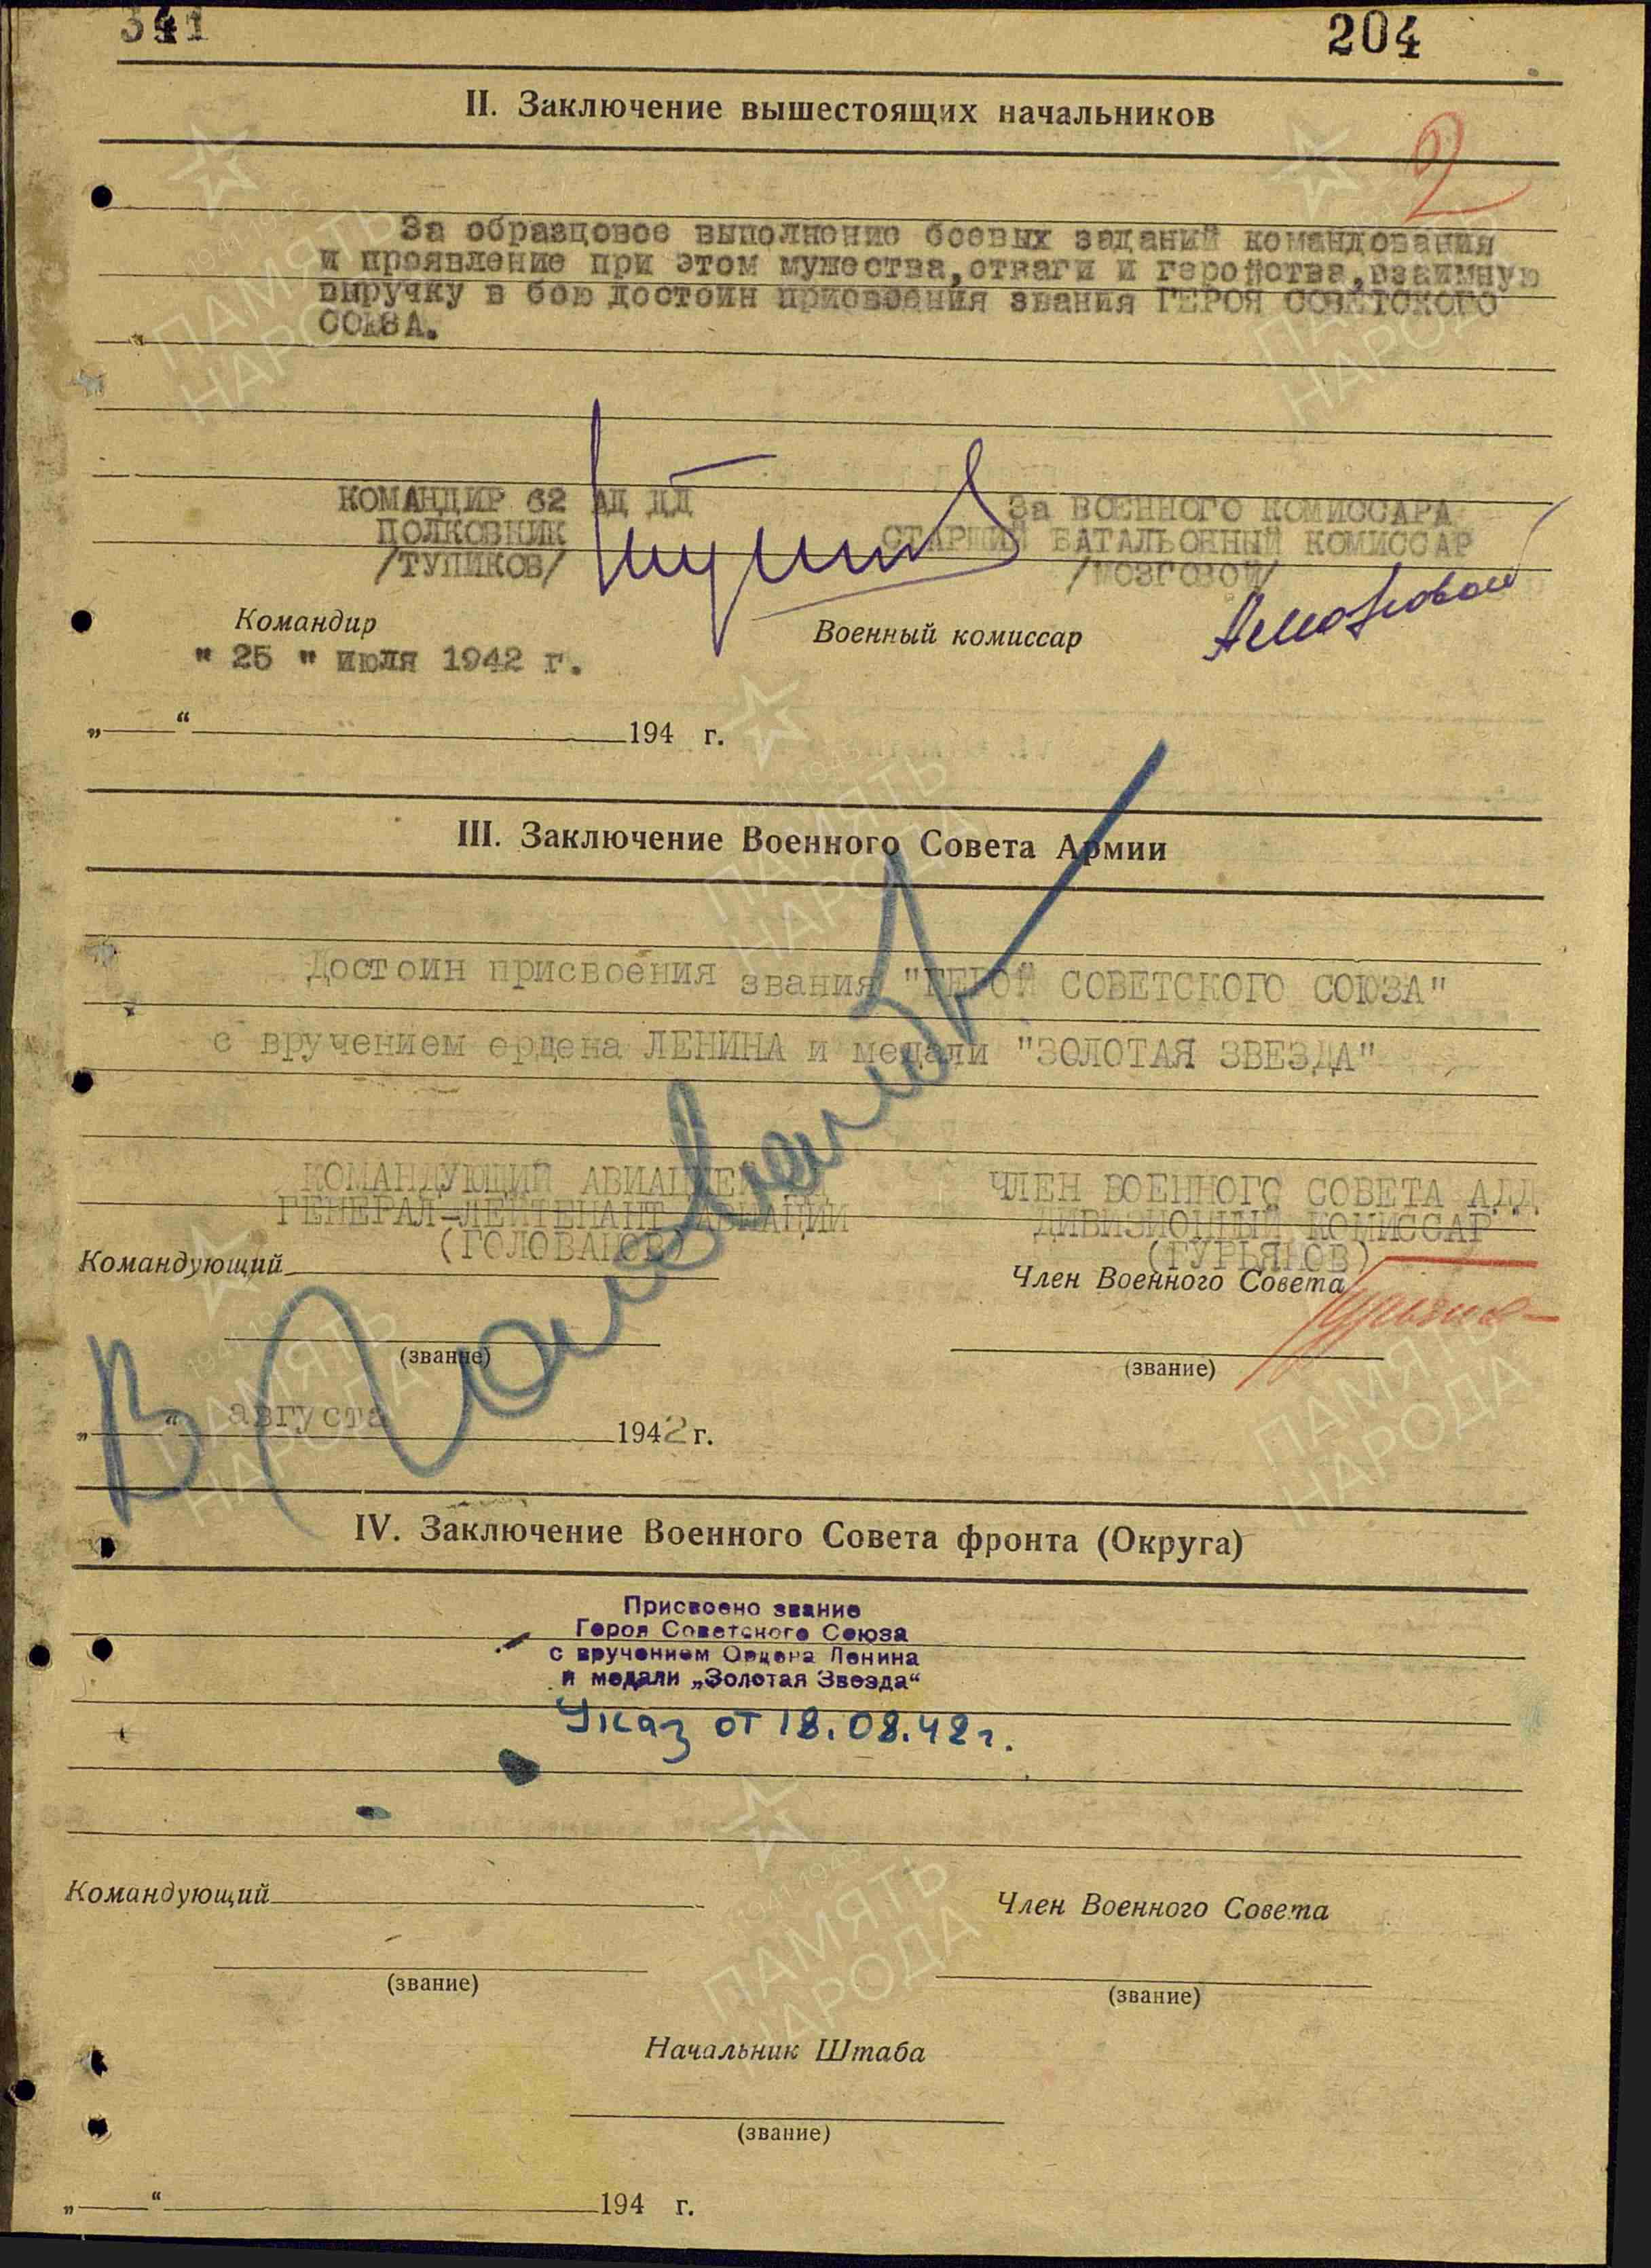 341
204
II. Заключение вышестоящих начальников
2
За образцовое выполнение боевых заданий командования
и проявление при этом мужества, отваги и геройства, взаимную
выручку в бою достоин присвоения звания ГЕРОЯ СОВЕТСКОГО
СОЮЗА.
КОМАНДИР 62 АД ДД
ПОЛКОВНИК
/ТУПИКОВ/
За ВОЕННОГО КОМИССАРА
СТАРШИЙ БАТАЛЬОННЫЙ КОМИССАР
/МОЗГОВОЙ/
Командир
Военный комиссар
" 25 " июля 1942 г.
„ “ 194 г.
III. Заключение Военного Совета Армии
Достоин присвоения звания "ГЕРОЙ СОВЕТСКОГО СОЮЗА"
с вручением ордена ЛЕНИНА и медали "ЗОЛОТАЯ ЗВЕЗДА"
КОМАНДУЮЩИЙ АВИАЦИЕЙ ДД
ГЕНЕРАЛ-ЛЕЙТЕНАНТ АВИАЦИИ
(ГОЛОВАНОВ)
ЧЛЕН ВОЕННОГО СОВЕТА АДД
ДИВИЗИОННЫЙ КОМИССАР
(ГУРЬЯНОВ)
Командующий
Член Военного Совета
(звание)
(звание)
„ “ августа 1942 г.
IV. Заключение Военного Совета фронта (Округа)
Присвоено звание
Героя Советского Союза
с вручением Ордена Ленина
и медали „Золотая Звезда“
Указ от 18.08.42 г.
Командующий
Член Военного Совета
(звание)
(звание)
Начальник Штаба
(звание)
„ “ 194 г.
ПАМЯТЬ
НАРОДА